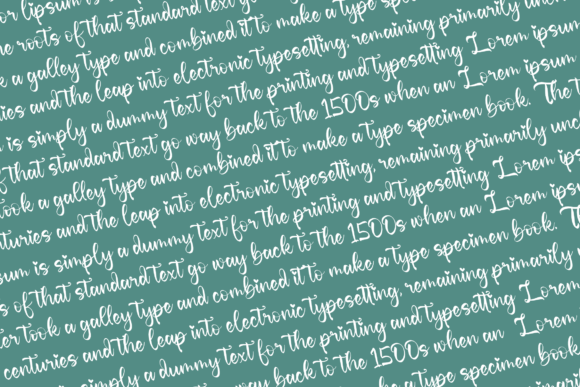 or lipsum is
roots of that standard text go
a galley type and combined it to make a type
and the leap into electronic typesetting, remaining primarily
is simply a dummy text for the printing and typesetting Lorem ipsum
that standard text go way back to the 1500s when an Lorem ipsum
took a galley type and combined it to make a type specimen book. The
nturies and the leap into electronic typesetting, remaining primarily unc
sum is simply a dummy text for the printing and typesetting Lorem ipsum
s of that standard text go way back to the 1500s when an Lorem ips
ter took a galley type and combined it to make a type specimen book. Th
centuries and the leap into electronic typesetting, remaining primarily
is simply a dummy text for the printing and typesetting Lorem
way back to the 1500s when an Lorem
type specimen book